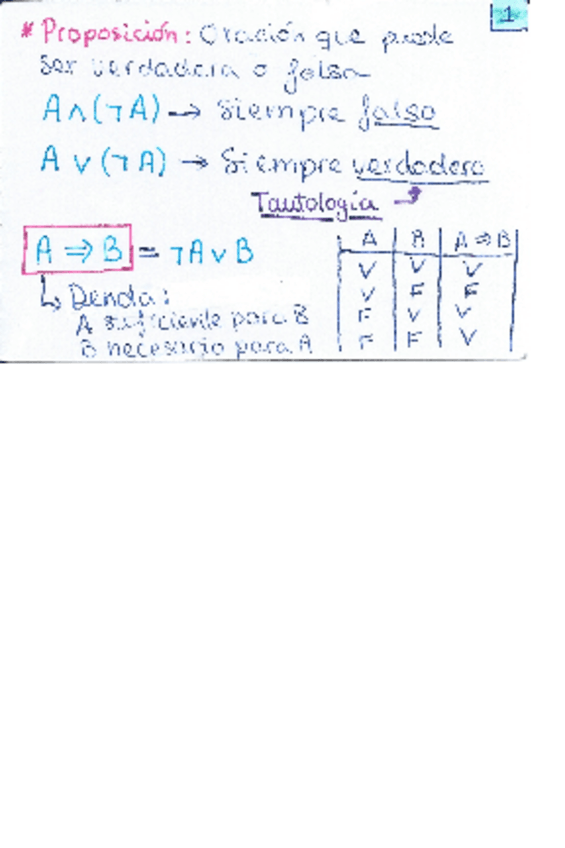 1
* Proposición: Oración que puede
ser verdadera o falsa
A ∧ (¬A) → Siempre falso
A ∨ (¬A) → Siempre verdadero
Tautología
A ⇒ B = ¬A ∨ B
↳ Denota:
A suficiente para B
B necesario para A
A | B | A ⇒ B
V | V | V
V | F | F
F | V | V
F | F | V